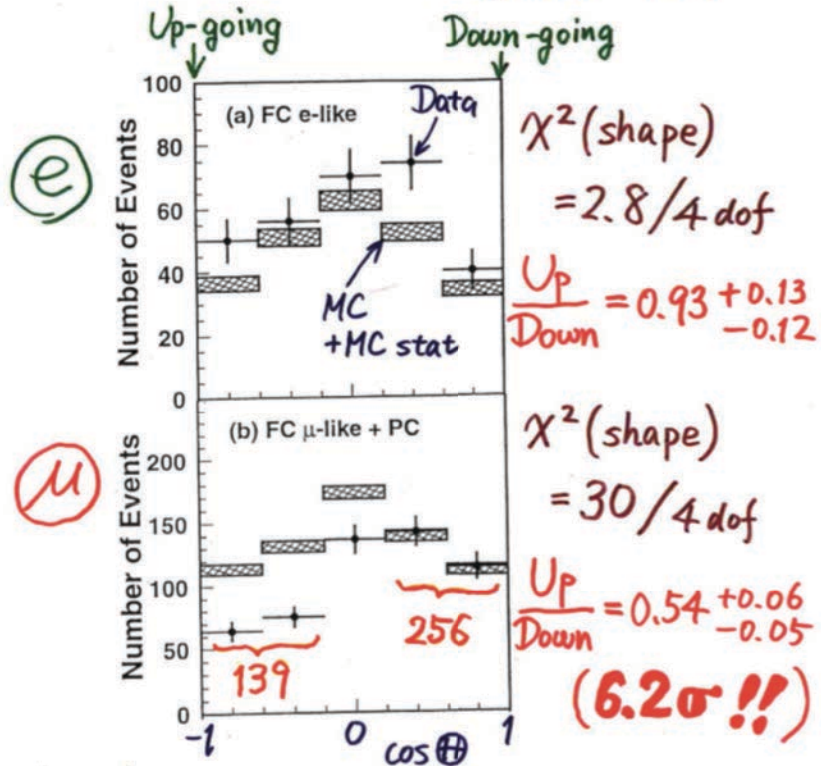 Up-going
Down-going
e
(a) FC e-like
Data
MC
+MC stat
Number of Events
100
80
60
40
20
0
χ² (shape)
= 2.8 / 4 dof
Up/Down = 0.93 +0.13 −0.12
μ
(b) FC μ-like + PC
Number of Events
200
150
100
50
0
139
256
-1
0
1
cos Θ
χ² (shape)
= 30 / 4 dof
Up/Down = 0.54 +0.06 −0.05
(6.2σ!!)